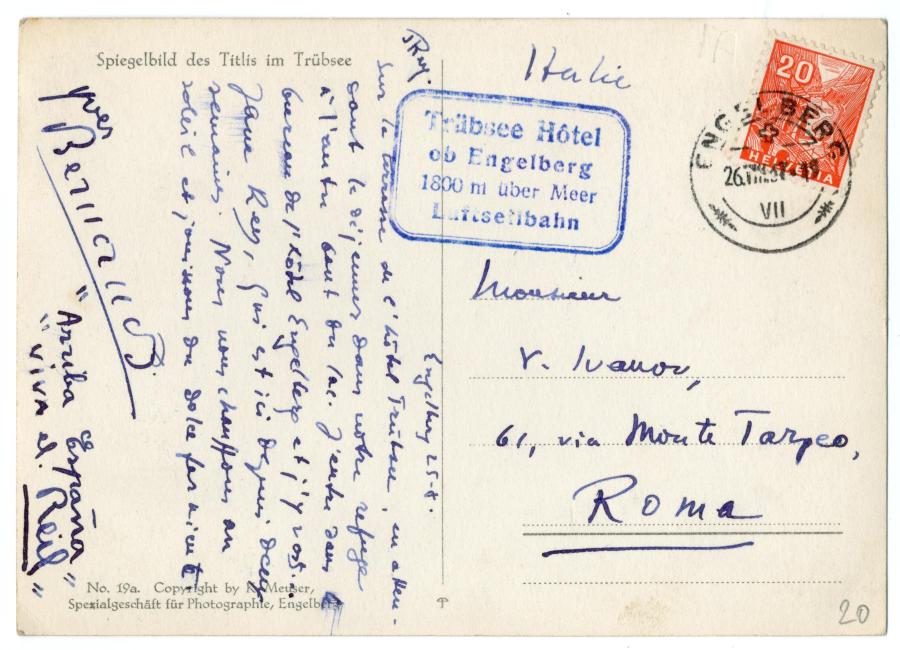 Spiegelbild des Titlis im Trübsee
Engelberg 25-8.
Sur la terrasse de l'hôtel Trübsee, en atten-
dant le déjeuner dans notre refuge
à l'autre bout du lac. J'entre dans le
bureau de l'hôtel Engelberg et j'y vois:
Jane Rey, qui est ici depuis deux
semaines. Nous nous chauffons au
soleil et jouissons du dolce far niente.
yves
"Arriba España"
"VIVA el Reil"
No. 19a. Copyright by K. Meuser,
Spezialgeschäft für Photographie, Engelberg
Trübsee Hôtel
ob Engelberg
1800 m über Meer
Luftseilbahn
Italie
20
HELVETIA
ENGELBERG
26.VIII.37
VII
Monsieur
V. Ivanov,
61, via Monte Tarpeo,
Roma
20